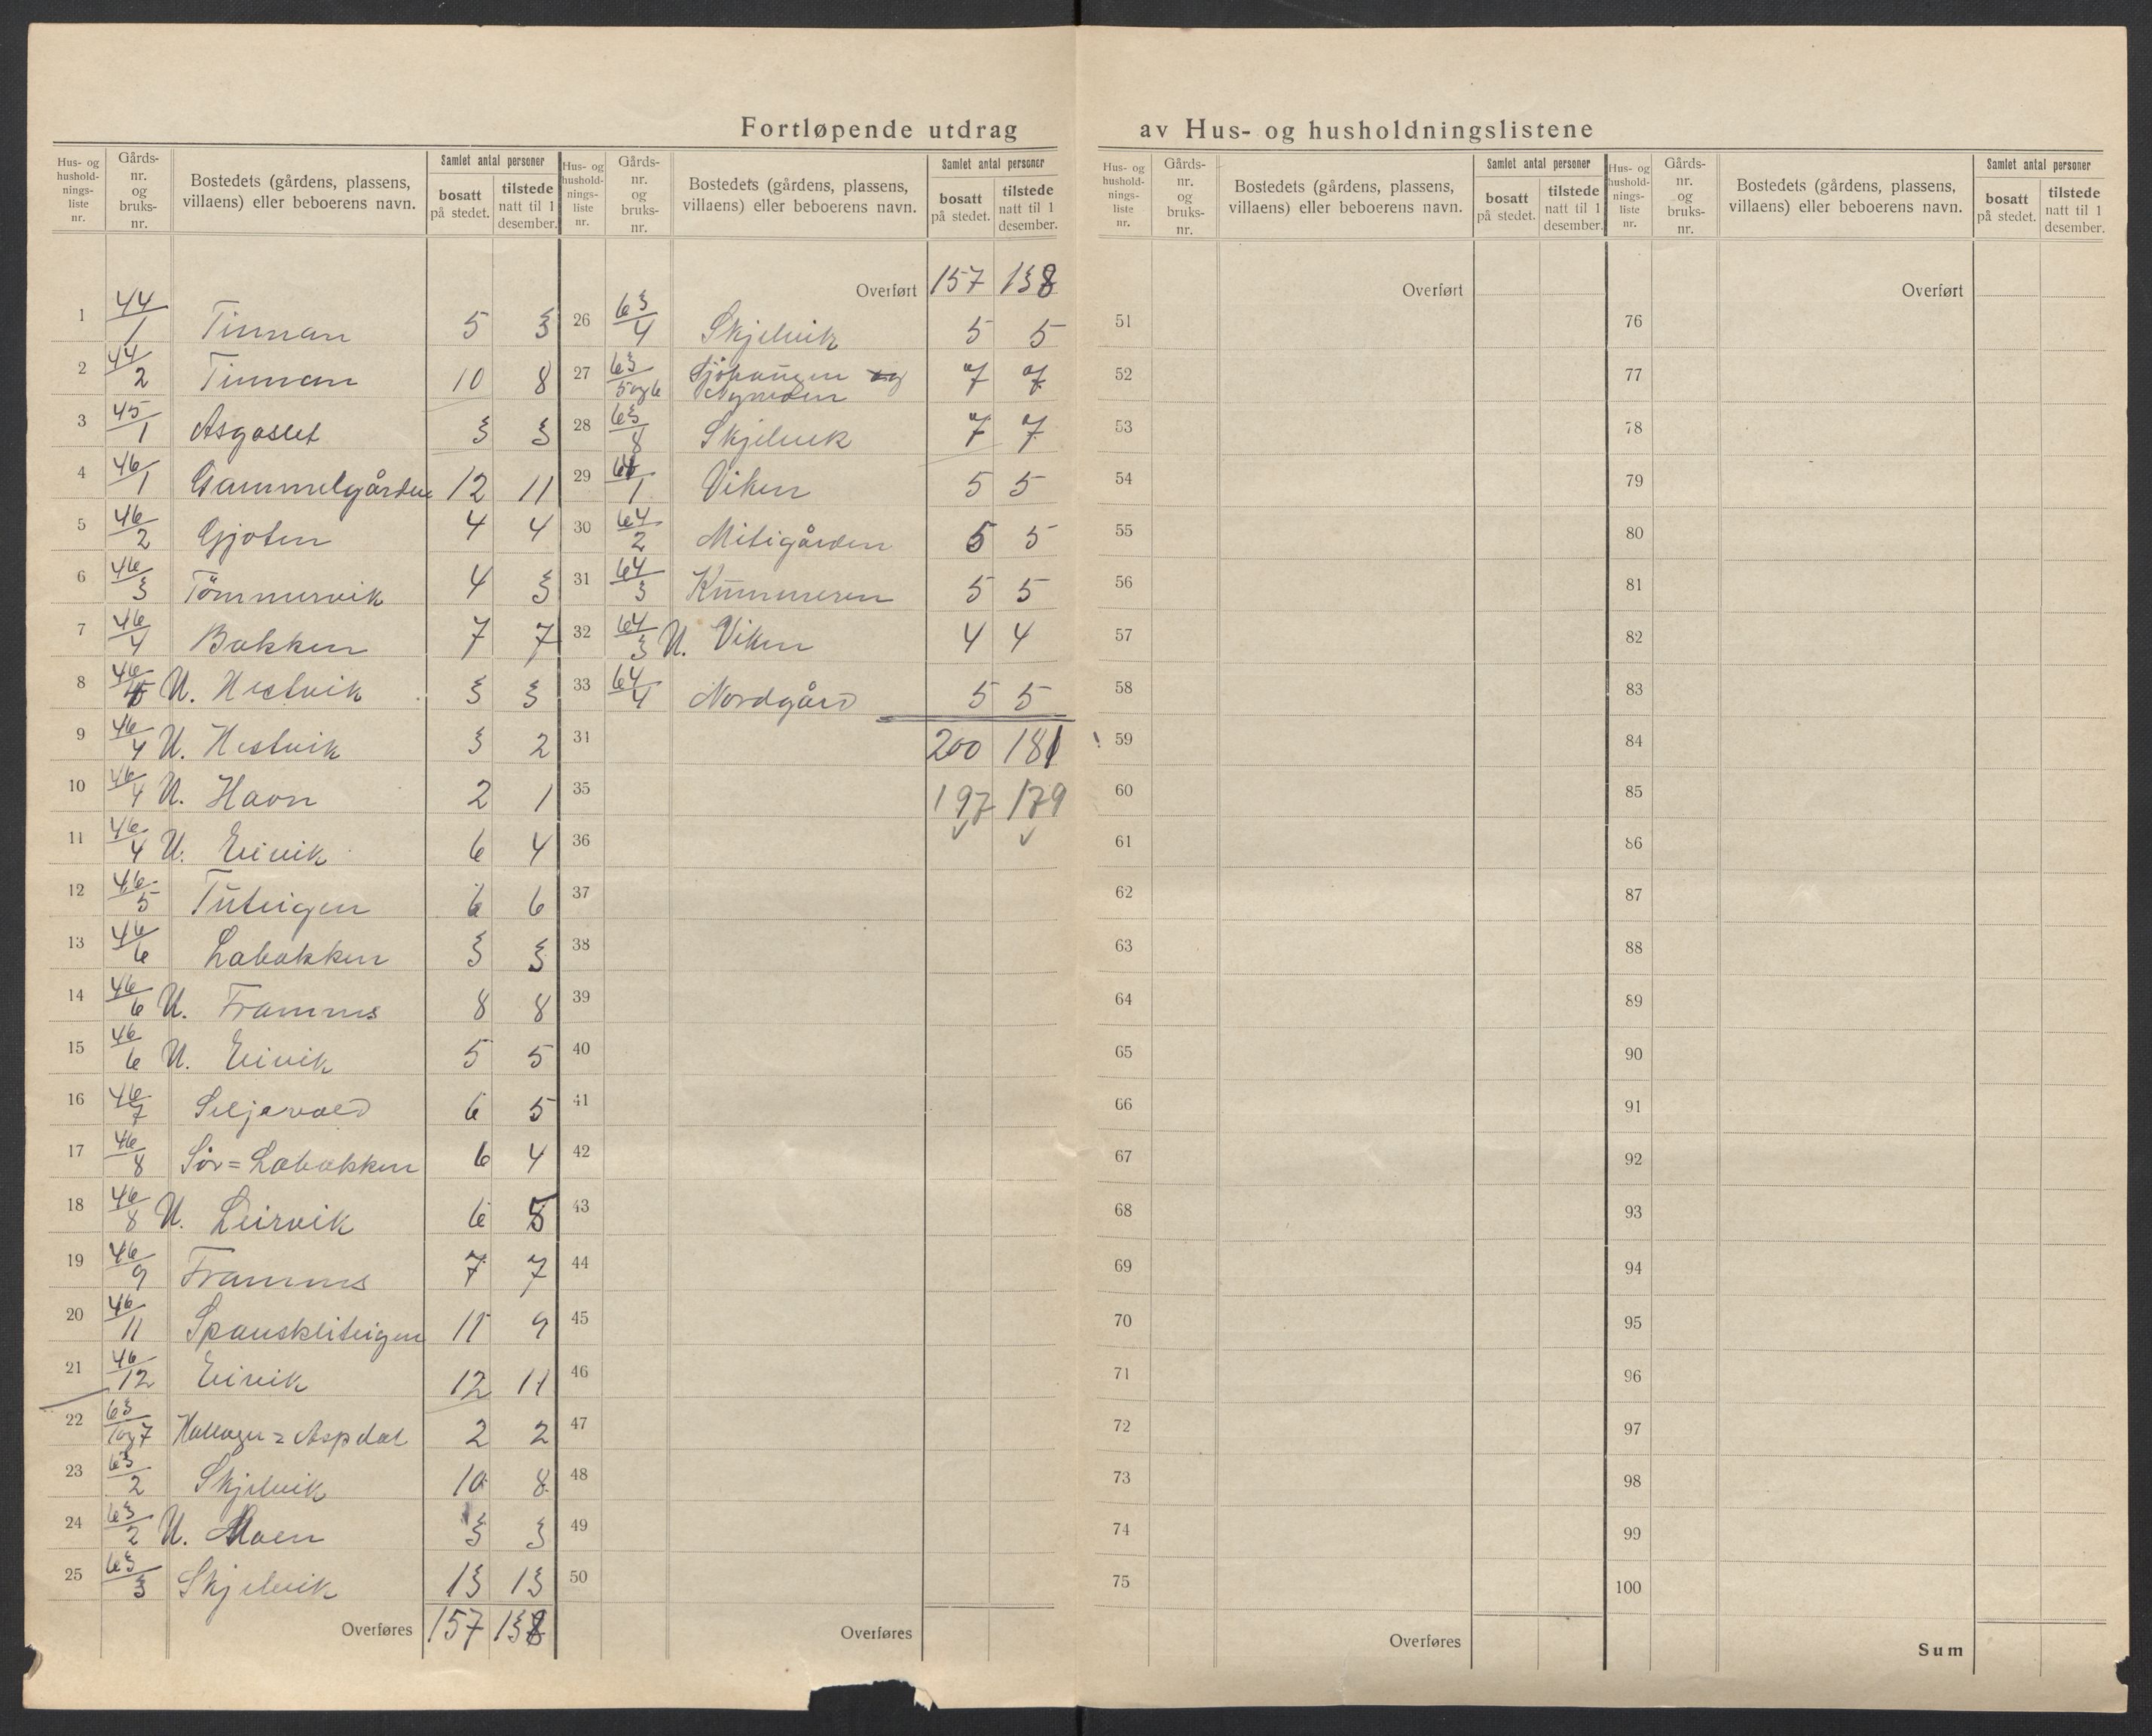 Fortløpende utdrag av Hus- og husholdningslistene
Hus- og hushold-nings-liste nr. Gårds-nr. og bruks-nr. Bostedets (gårdens, plassens, villaens) eller beboerens navn. Samlet antal personer bosatt på stedet. tilstede natt til 1 desember.
1 44/1 Tinnan 5 3
2 44/2 Tinnan 10 8
3 45/1 Asgaslet 3 3
4 46/1 Gammelgården 12 11
5 46/2 Gjoten 4 4
6 46/3 Tömmervik 4 3
7 46/4 Bakken 7 7
8 46/4 U. Hestvik 3 3
9 46/4 U. Hestvik 3 2
10 46/4 U. Havn 2 1
11 46/4 U. Eivik 6 4
12 46/5 Tuteigen 6 6
13 46/6 Labakken 3 3
14 46/6 U. Framnes 8 8
15 46/6 U. Eivik 5 5
16 46/7 Seljevold 6 5
17 46/8 Sör=Labakken 6 4
18 46/8 U. Leirvik 6 5
19 46/9 Framnes 7 7
20 46/11 Spanskliteigen 11 9
21 46/12 Eivik 12 11
22 63/1og7 = Aspdal 2 2
23 63/2 Skjelvik 10 8
24 63/2 U. Moen 3 3
25 63/3 Skjelvik 13 13
Overføres 157 138
Hus- og hushold-nings-liste nr. Gårds-nr. og bruks-nr. Bostedets (gårdens, plassens, villaens) eller beboerens navn. Samlet antal personer bosatt på stedet. tilstede natt til 1 desember.
Overført 157 138
26 63/4 Skjelvik 5 5
27 63/5og6 og 7 7
28 63/8 Skjelvik 7 7
29 64/1 Viken 5 5
30 64/2 Mitigården 5 5
31 64/3 Kummeren 5 5
32 64/3 U. Viken 4 4
33 64/4 Nordgård 5 5
31 200 181
35 197 179
36
37
38
39
40
41
42
43
44
45
46
47
48
49
50
Overføres
Hus- og hushold-nings-liste nr. Gårds-nr. og bruks-nr. Bostedets (gårdens, plassens, villaens) eller beboerens navn. Samlet antal personer bosatt på stedet. tilstede natt til 1 desember.
Overført
51
52
53
54
55
56
57
58
59
60
61
62
63
64
65
66
67
68
69
70
71
72
73
74
75
Overføres
Hus- og hushold-nings-liste nr. Gårds-nr. og bruks-nr. Bostedets (gårdens, plassens, villaens) eller beboerens navn. Samlet antal personer bosatt på stedet. tilstede natt til 1 desember.
Overført
76
77
78
79
80
81
82
83
84
85
86
87
88
89
90
91
92
93
94
95
96
97
98
99
100
Sum